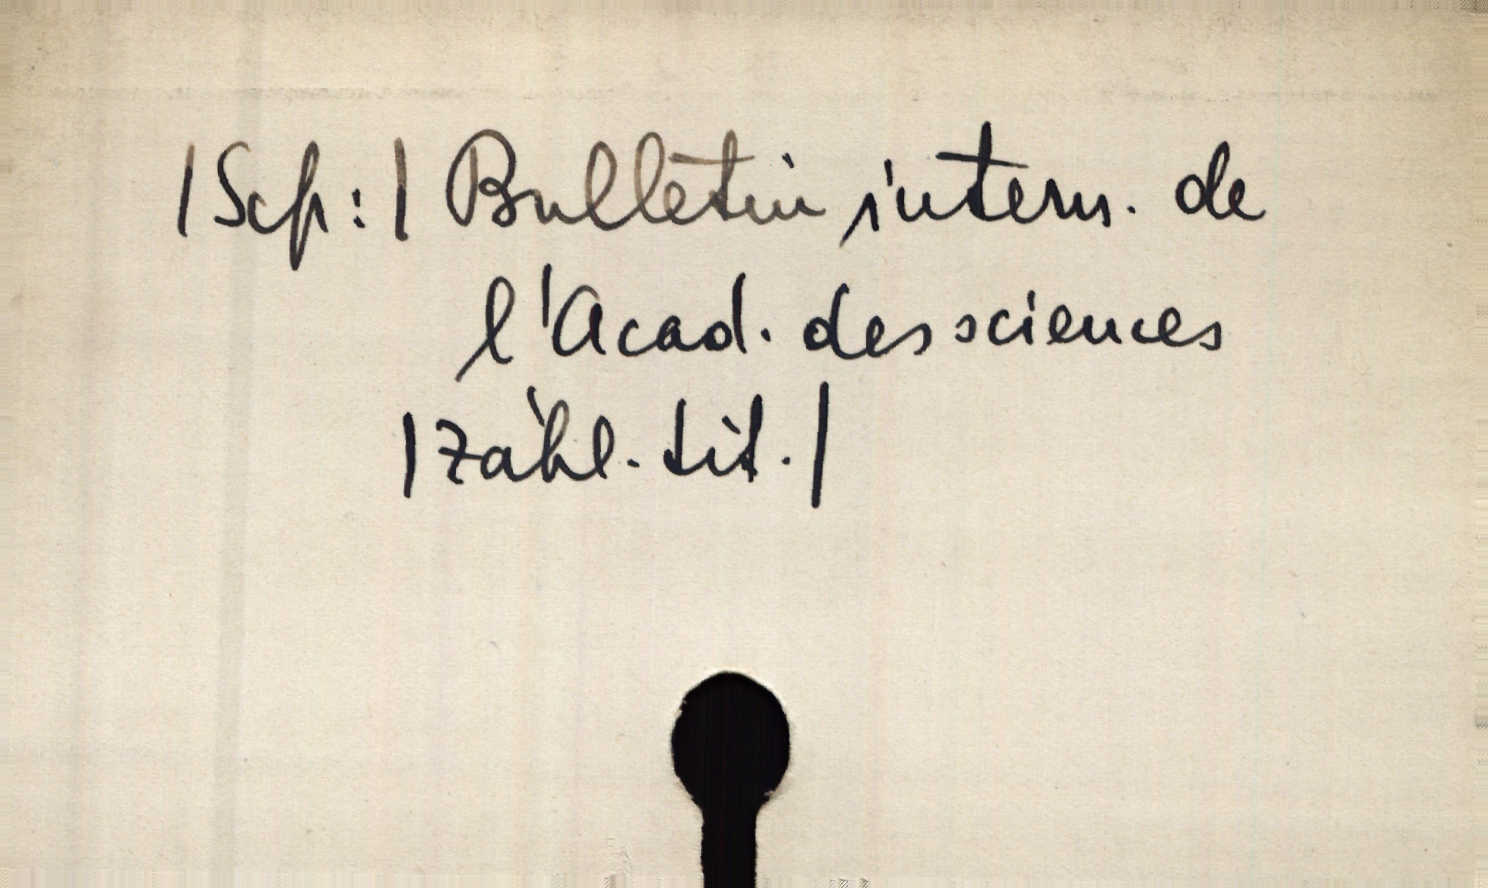 |Sep:| Bulletin intern. de
l'Acad. des sciences
|záhl. tit.|